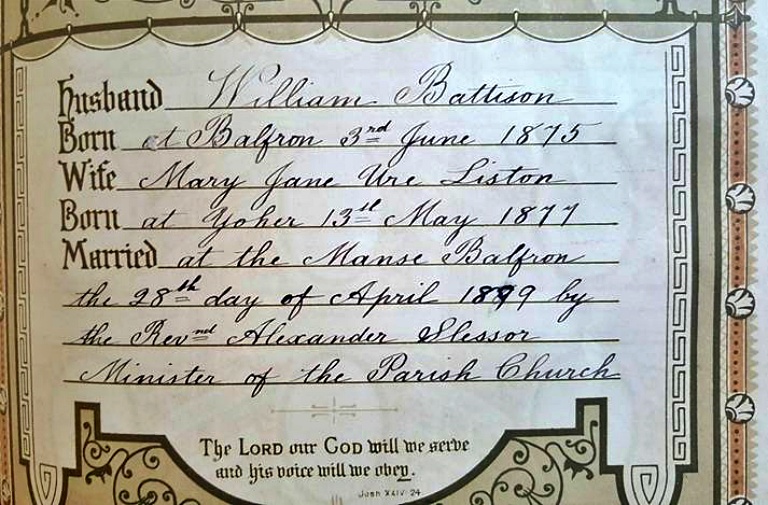 Husband William Battison
Born at Balfron 3rd June 1875
Wife Mary Jane Ure Liston
Born at Yoker 13th May 1877
Married at the Manse Balfron
the 28th day of April 1899 by
the Revnd Alexander Slessor
Minister of the Parish Church
The LORD our GOD will we serve
and his voice will we obey.
Josh XXIV. 24.